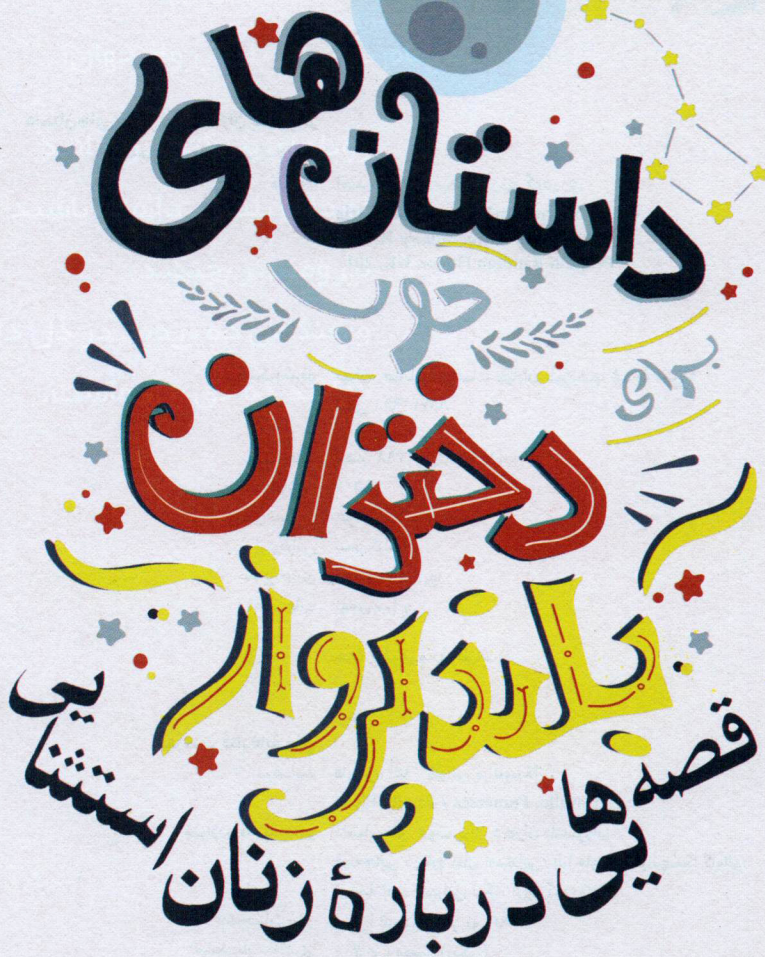 داستان‌های
خوب
برای
دختران
بلندپرواز
قصه‌هایی دربارهٔ زنان استثنایی